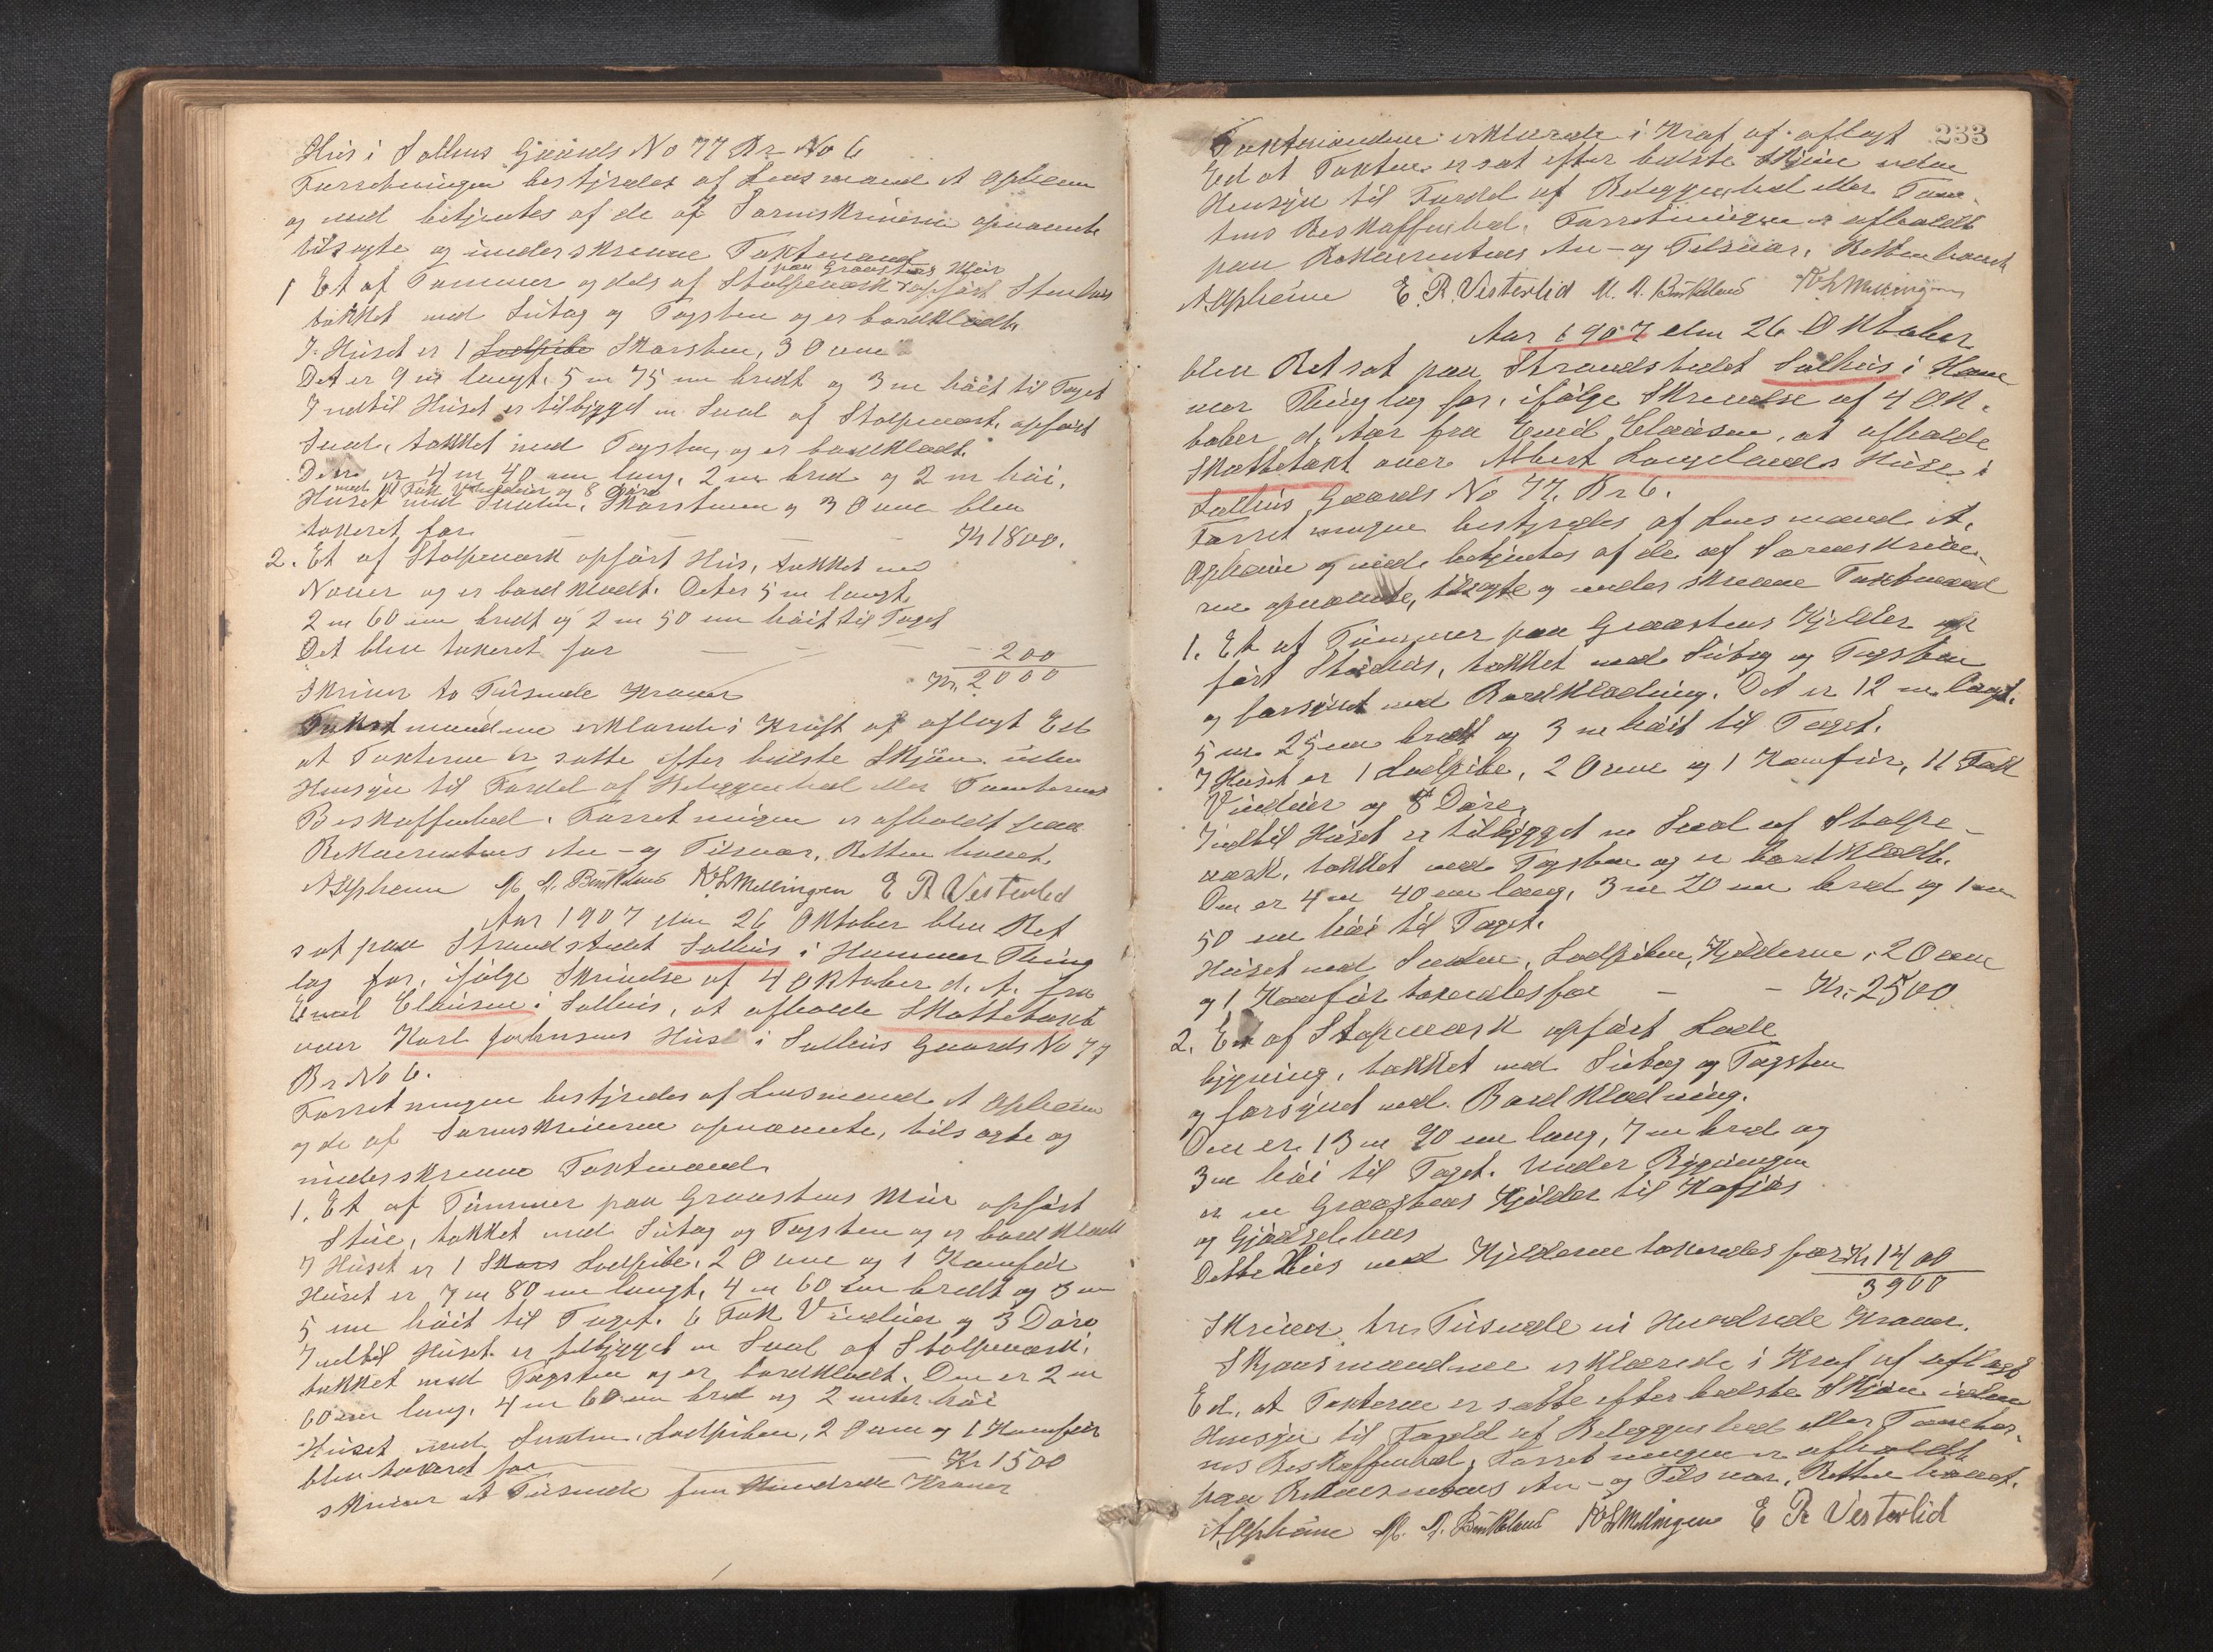 Hus i Salhus Gaards No 77 Br No 6
Forretningen bestyredes af Lensmand A Opheim
og med betjentes af de af Sorenskriveren opnævnte
tilsagte og underskrevne Taxtmænd
paa Graastens Mur
1 Et af Tømmer og dels af Stolpeværk opført Stuehus
tækket med Sutag og Tagsten og er bordklædt.
I Huset er 1 Skorsten, 3 Ovne
Det er 9 m langt, 5 m 75 cm bredt og 3 m høit til Taget
Indtil Huset er tilbygget en Sval af Stolpeværk, opført
Sval, tækket med Tagsten og er bordklædt.
Den er 4 m 40 cm lang, 2 m bred og 2 m høi.
med 11 Fak Vinduer og 8 Døre
Huset med Svalen, Skorstenen og 3 Ovne blev
taxeret for — — — Kr 1800.
2. Et af Stolpeværk opført Hus, tækket med
Nover og er bordklædt. Det er 5 m langt,
2 m 60 cm bredt og 2 m 50 cm høit til Taget
Det blev taxeret for — — — 200
Skriver to Tusinde Kroner Kr. 2000
Taxtmændene erklærede i Kraft af aflagt Ed
at Taxterne er satte efter bedste Skjøn uden
Hensyn til Fordel af Beliggenhed eller Tomternes
Beskaffenhed. Forretningen er afholdt paa
Rekvirentens An- og Tilsvar. Retten hævet.
A Opheim M. A. Birkeland K L Mellingen E R Vesterlid
Aar 1907 den 26 Oktober blev Ret
sat paa Strandstedet Salhus i Hammer Thing
lag for, ifølge Skrivelse af 4 Oktober d. A. fra
Emil Clausen i Salhus, at afholde Skattetaxt
over Karl Johnsens Hus i Salhus Gaards No 77
Br No 6.
Forretningen bestyredes af Lensmand A Opheim
og de af Sorenskriveren opnævnte, tilsagte og
underskrevne Taxtmænd.
1. Et af Tømmer paa Graastens Mur opført
Stue, tækket med Sutag og Tagsten og er bordklædt
I Huset er 1 Skors Lodpibe, 2 Ovne og 1 Komfur
Huset er 7 m 80 cm langt, 4 m 60 cm bredt og 3 m
5 cm høit til Taget. 6 Fak Vinduer og 3 Døre
Indtil Huset er tilbygget en Sval af Stolpeværk,
tækket med Tagsten og er bordklædt. Den er 2 m
60 cm lang, 4 m 60 cm bred og 2 meter høi
Huset med Svalen, Lodpiben, 2 Ovne og 1 Komfur
blev taxeret for — — — Kr 1500
skriver et Tusinde fem Hundrede Kroner
233
Taxtmændene erklærede i Kraf af aflagt
Ed at Taxten er sat efter bedste Skjøn uden
Hensyn til Fordel af Beliggenhed eller Tom-
tens Beskaffenhed. Forretningen er afholdt
paa Rekvirentens An- og Tilsvar. Retten hævet
A Opheim E. R. Vesterlid M. A. Birkeland K L Mellingen
Aar 1907 den 26 Oktober
blev Ret sat paa Strandstedet Salhus i Ham
mer Thinglag for, ifølge Skrivelse af 4 Ok-
tober d. Aar fra Emil Clausen, at afholde
Skattetaxt over Albert Langelands Huse i
Salhus Gaards No 77. Br 6.
Forretningen bestyredes af Lensmand A.
Opheim og med betjentes af de af Sorenskrive-
ren opnævnte, tilsagte og underskrevne Taxtmænd
1. Et af Tømmer paa Graastens Kjelder op
ført Stuehus, tækket med Sutag og Tagsten
og forsynet med Bordklædning. Det er 12 m langt.
5 m 25 cm bredt og 3 m høit til Taget.
I Huset er 1 Lodpibe, 2 Ovne og 1 Komfur, 11 Fak
Vinduer og 8 Døre.
Indtil Huset er tilbygget en Sval af Stolpe-
værk, tækket med Tagsten og er bordklædt.
Den er 4 m 40 cm lang, 3 m 20 cm bred og 1 m
50 cm høi til Taget.
Huset med Svalen, Lodpiben, Kjelderne, 2 Ovne
og 1 Komfur taxeredes for — — Kr. 2500
2. En af Stopeværk opført Lade
bygning, tækket med Sutag og Tagsten
og forsynet med Bordklædning.
Den er 13 m 90 cm lang, 7 m bred og
3 m høi til Taget. Under Bygningen
er en Graastens Kjelder til Kofjøs
og Gjødselhus
Dette Hus med Kjelderne taxeredes for Kr 1400
3900
Skriver tre Tusinde ni Hundrede Kroner.
Skjønsmændene erklærede i Kraf af aflagt
Ed, at Taxterne er satte efter bedste Skjøn uden
Hensyn til Fordel af Beliggenhed eller Tomter-
nes Beskaffenhed. Forretningen er afholdt
paa Rekvirentens An- og Tilsvar. Retten hævet.
A Opheim M. A. Birkeland K L Mellingen E R Vesterlid